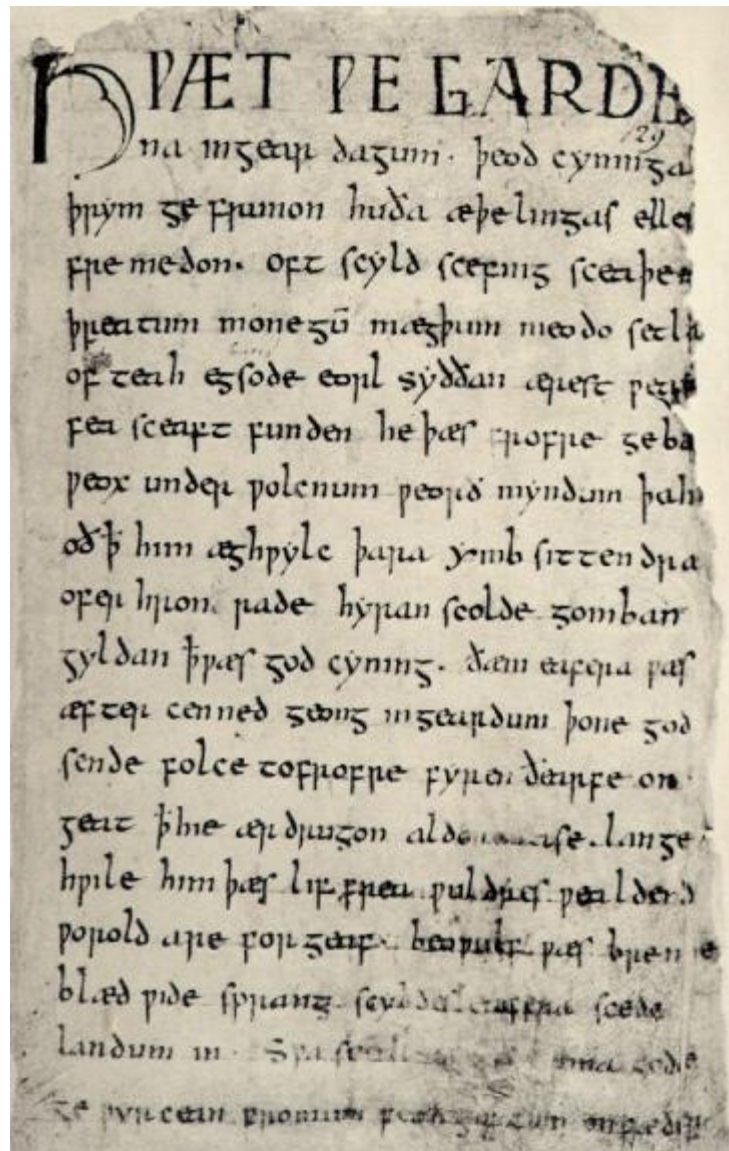 HǷÆT ǷE GARDE
129
na ingear dagum. þeod cyninga
þrym ge frunon huða æþelingas elle
fre medon. oft scyld scefing sceaþe
þreatum monegū mægþum meodo setla
of teah egsode eorl syððan ærest ƿear
fea sceaft funden he þæs frofre geba
ƿeox under ƿolcnum ƿeorð myndum þah
oð ꝥ him æghƿylc þara ymb sittendra
ofer hron rade hyran scolde gomban
gyldan ꝥ ƿæs god cyning. ðæm eafera ƿæs
æfter cenned geong ingeardum þone god
sende folce tofrofre fyren ðearfe on
geat ꝥ hie ær drugon aldor ase. lange
hƿile him þæs lif frea ƿuldres ƿealdend
ƿorold are for geaf. beoƿulf ƿæs breme
blæd ƿide sprang scyldes eafera scede
landum in. Sƿa sceal ma gode
ge ƿyrcean fromum feoh giftum on fæder